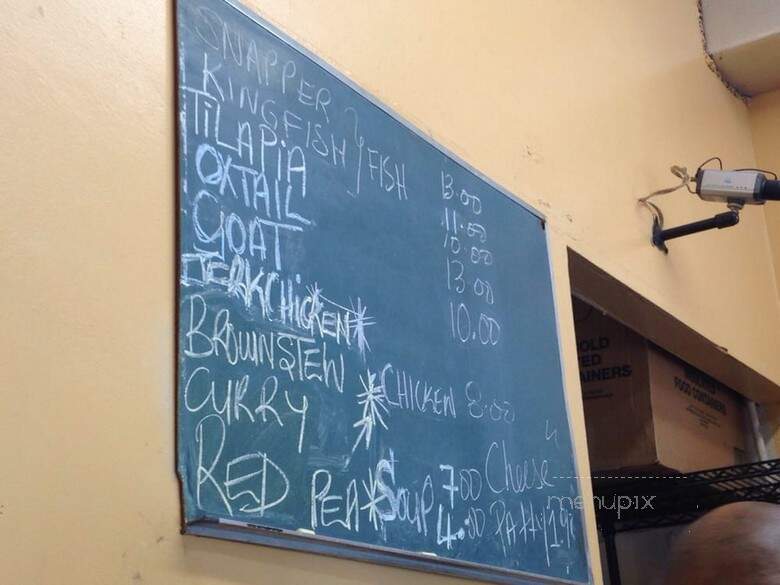 SNAPPER 13.00
KINGFISH } FISH 11.00
TILAPIA 10.00
OXTAIL 13.00
GOAT 10.00
JERK CHICKEN
BROWN STEW CHICKEN 8.00
CURRY
RED PEA SOUP 7.00 Cheese
4.00 Patty
OLD
TED
AINERS
FOOD CONTAINERS
menupix